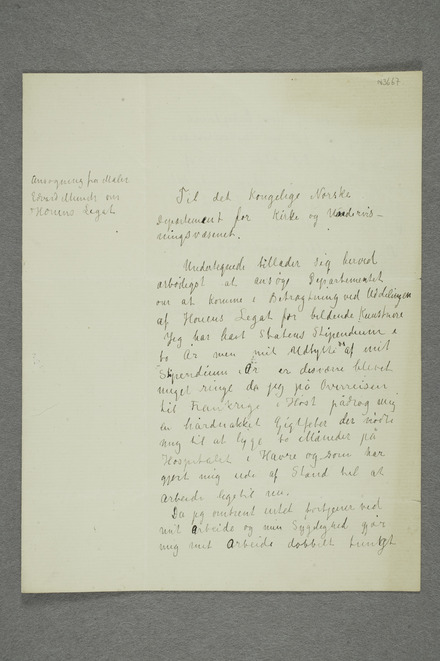 N3667
Ansøgning fra Maler
Edvard Munch om
Hounens Legat
Til det Kongelige Norske
Departement for Kirke og Undervis-
ningsvæsenet.
Undertegnede tillader sig herved
arbødigst at ansøge Departementet
om at komme i Betragtning ved Uddelingen
af Hounens Legat for bildende Kunstnere
Jeg har havt Statens Stipendium i
to År men mit Udbytte af mit
Stipendium i År er desværre blevet
meget ringe da jeg på Overreisen
til Frankrige i Høst pådrog mig
en hårdnakket Gigtfeber der nødte
mig til at ligge to Måneder på
Hospitalet i Havre og som har
gjort mig ude af Stand til at
arbeide lige til nu.
Da jeg omtrent intet fortjener ved
mit Arbeide og min Sygdighed gjør
mig mit Arbeide dobbelt tungt